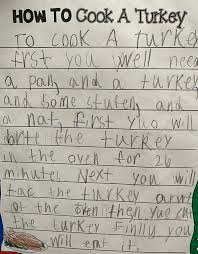 HOW TO Cook A Turkey
TO COOK A Turkey
frst you Well need
a pan, and a turkey
and Some stufen, and
a nat, first you will
brte the turkey
in the oven for 26
minutes Next you will
tac the turkey awt
of the oven then you cut
the turkey Finlly you
Will eat it.